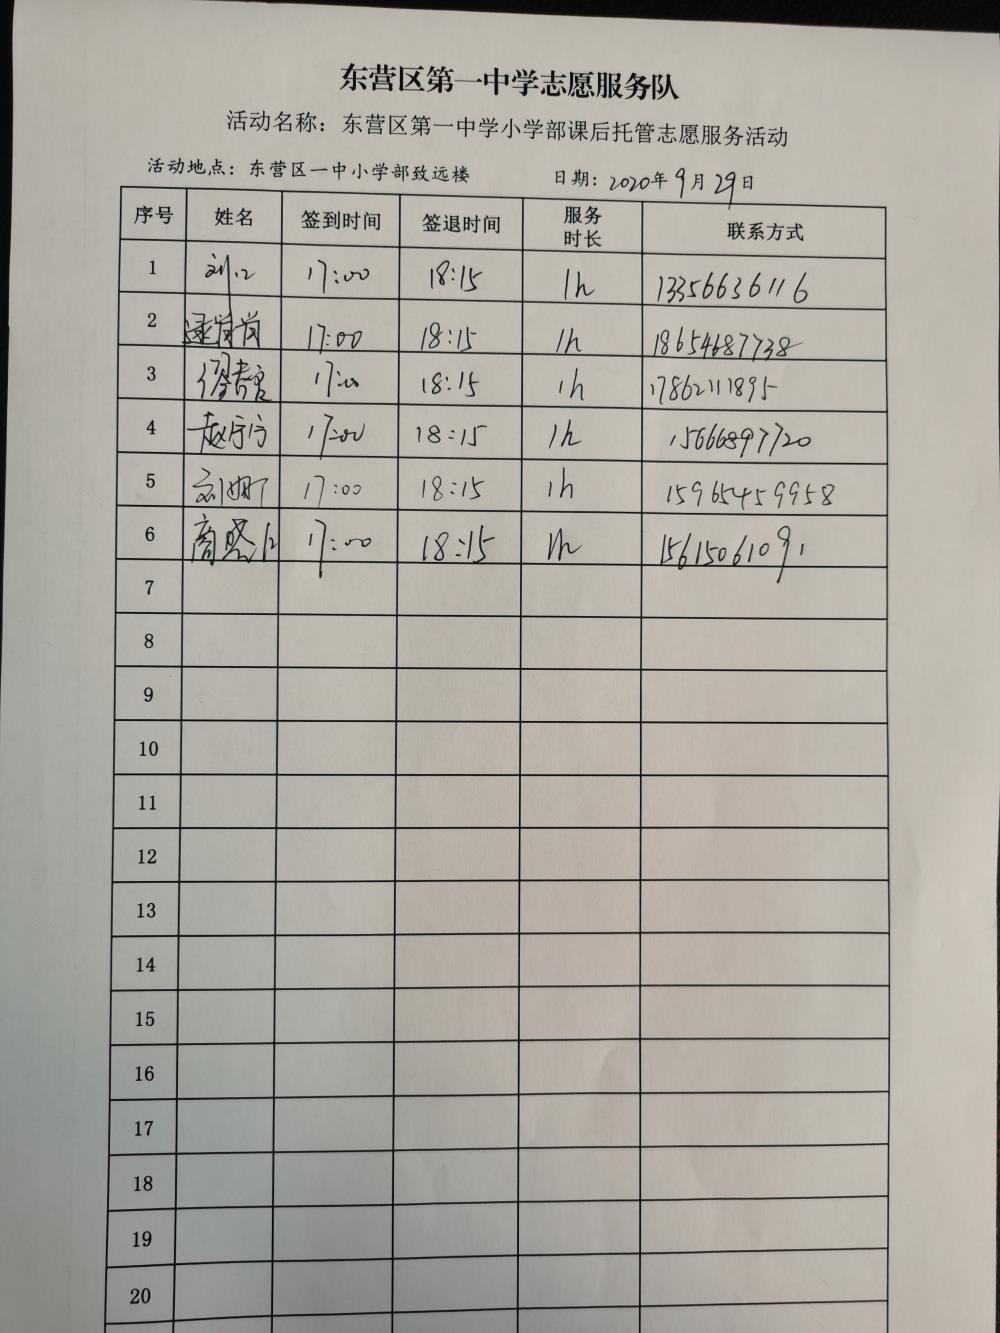 东营区第一中学志愿服务队
活动名称：东营区第一中学小学部课后托管志愿服务活动
活动地点：东营区一中小学部致远楼 日期：2020年9月29日
序号 姓名 签到时间 签退时间 服务时长 联系方式
1 刘 17:00 18:15 1h 13356636116
2 17:00 18:15 1h 18654687738
3 17:00 18:15 1h 17862111895
4 赵 17:00 18:15 1h 15666897720
5 刘娜 17:00 18:15 1h 15965459958
6 商 17:00 18:15 1h 15615061091
7
8
9
10
11
12
13
14
15
16
17
18
19
20